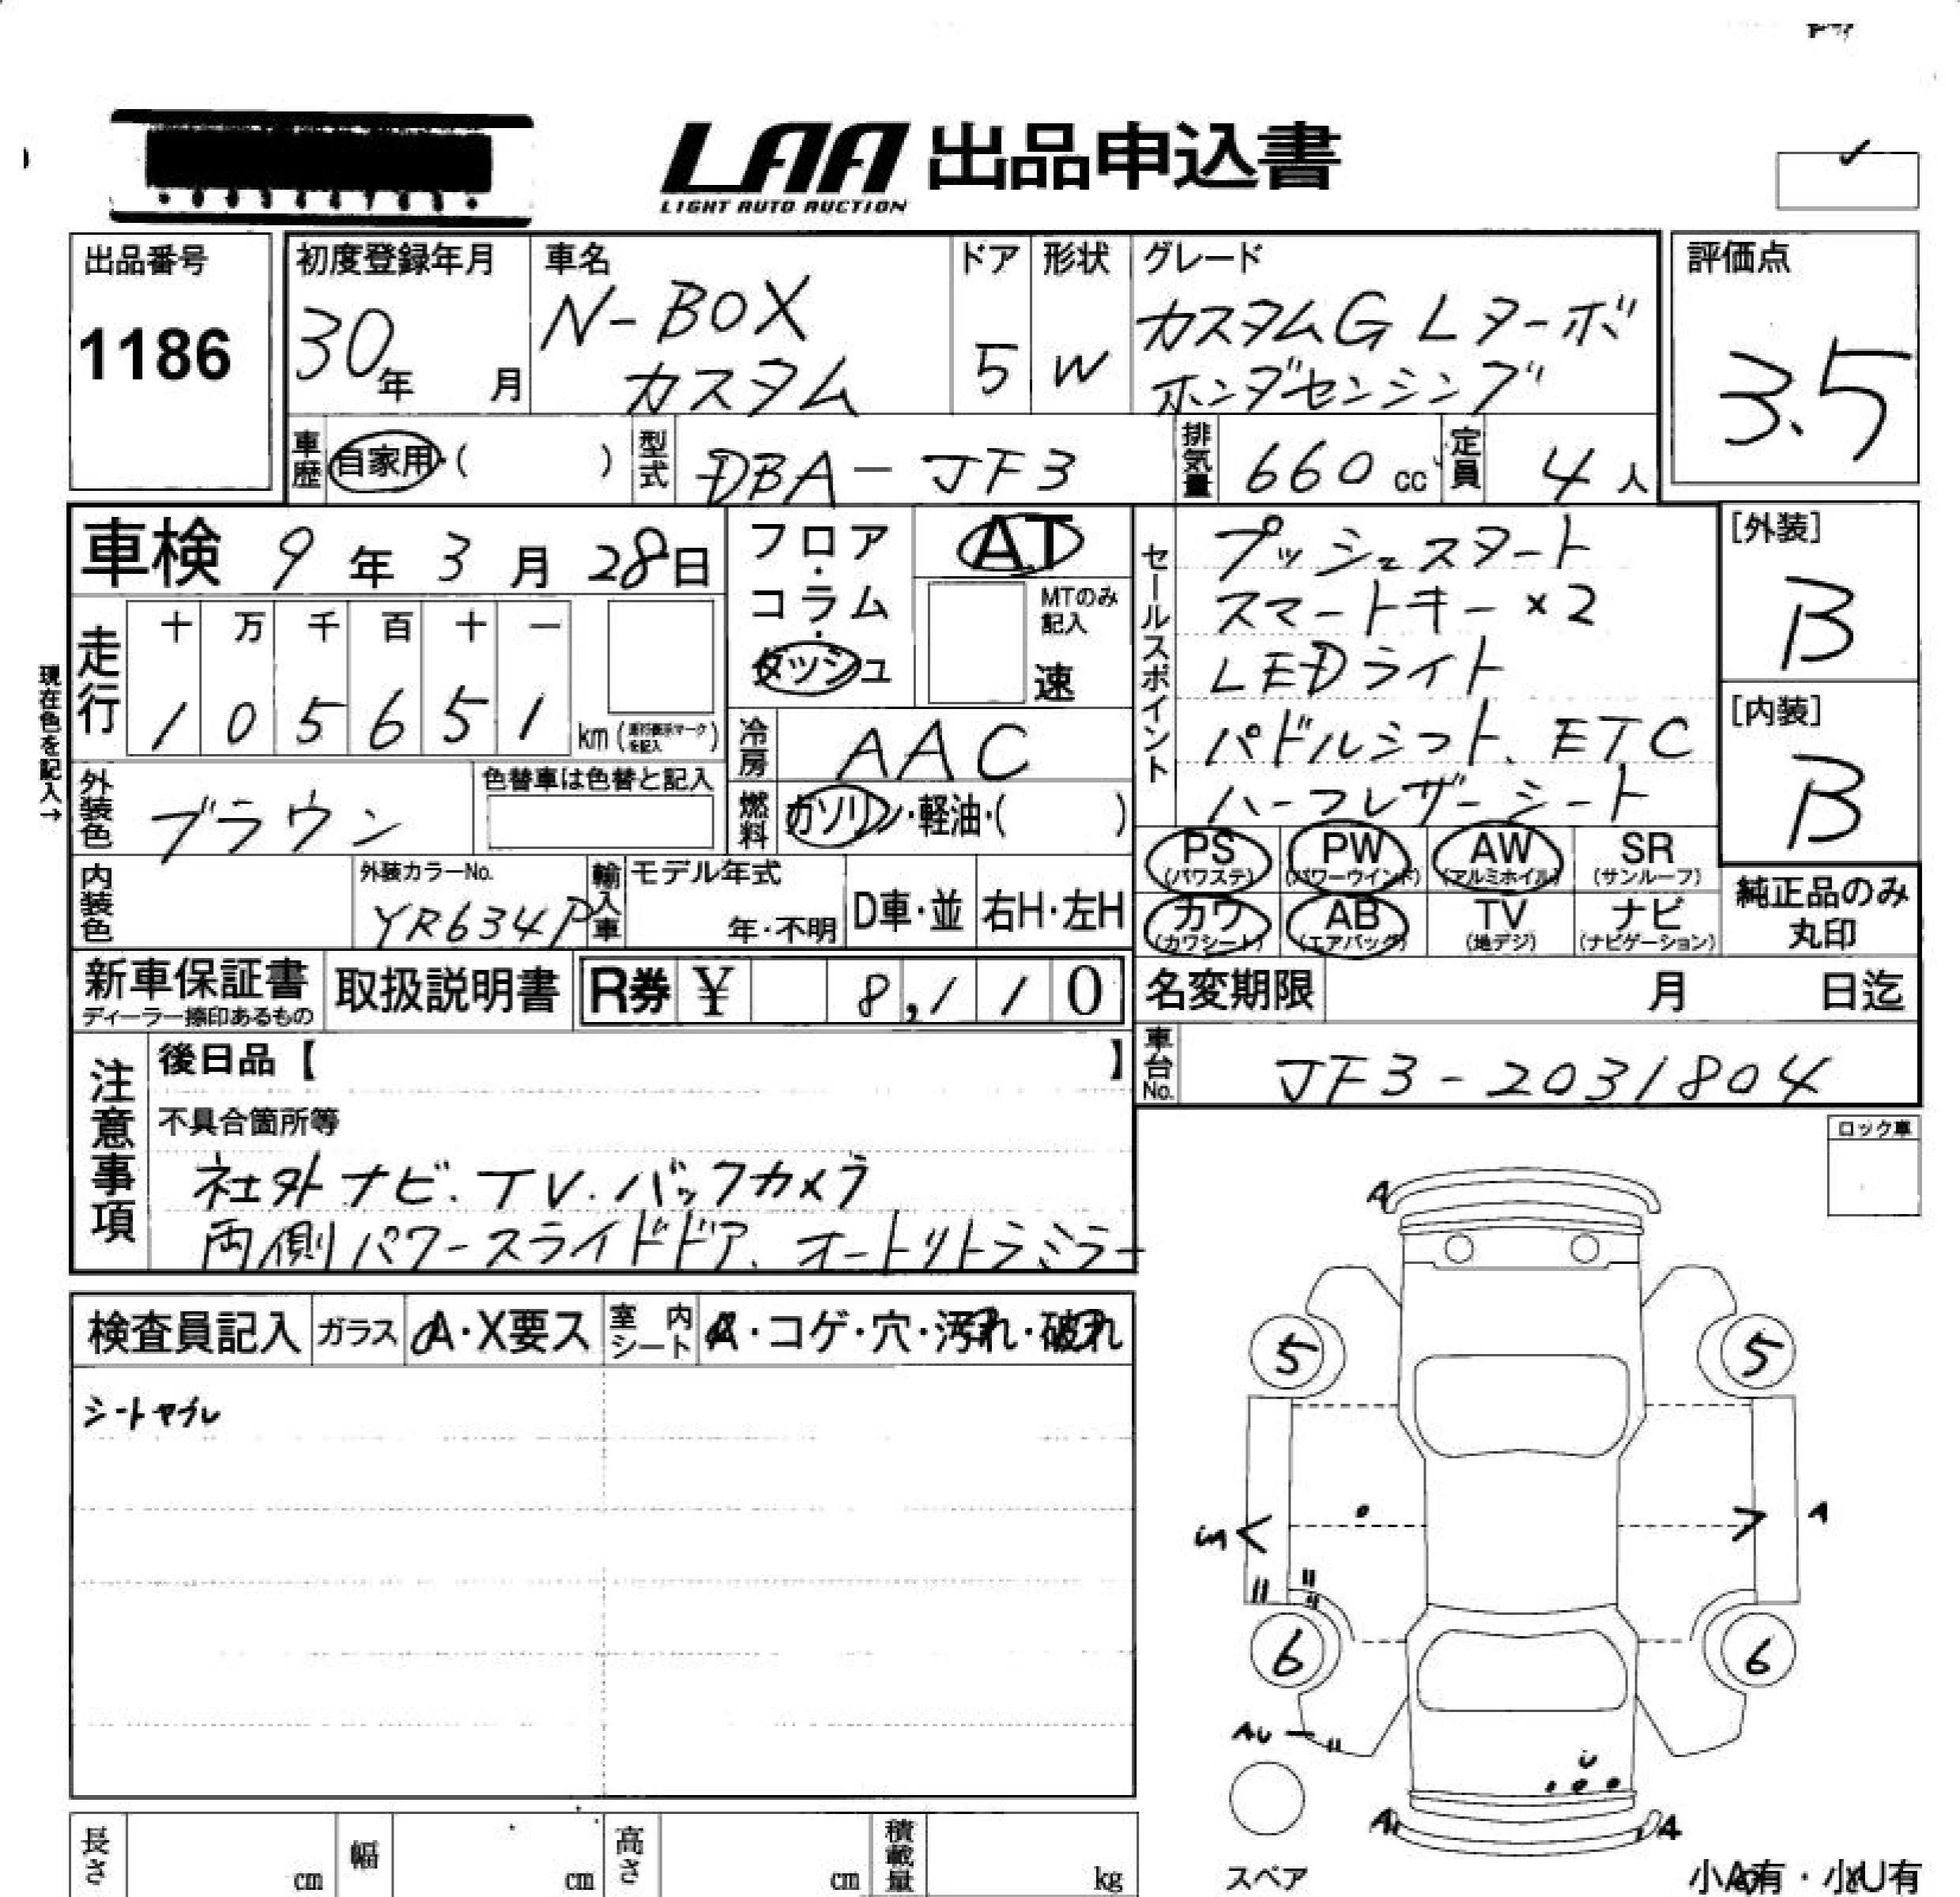 LAA 出品申込書
LIGHT AUTO AUCTION
出品番号
1186
初度登録年月
30年 月
車名
N-BOX
カスタム
ドア
5
形状
W
グレード
カスタムG Lターボ
ホンダセンシング
評価点
3.5
車歴
自家用・( )
型式
DBA-JF3
排気量
660 cc
定員
4人
車検 9年3月28日
走行
十 万 千 百 十 一
1 0 5 6 5 1 km
現在色を記入→
フロア・コラム・ダッシュ
AT
MTのみ記入
速
冷房
AAC
燃料
ガソリン・軽油・( )
セールスポイント
プッシュスタート
スマートキー×2
LEDライト
パドルシフト、ETC
ハーフレザーシート
[外装]
B
[内装]
B
外装色
ブラウン
色替車は色替と記入
内装色
外装カラーNo.
YR634P
輸入車
モデル年式
年・不明
D車・並
右H・左H
PS
(パワステ)
PW
(パワーウインド)
AW
(アルミホイル)
SR
(サンルーフ)
カワ
(カワシート)
AB
(エアバッグ)
TV
(地デジ)
ナビ
(ナビゲーション)
純正品のみ
丸印
新車保証書
ディーラー捺印あるもの
取扱説明書
R券 ¥ 8,110
名変期限 月 日迄
車台No.
JF3-2031804
注意事項
後日品【 】
不具合箇所等
社外ナビ.TV.バックカメラ
両側パワースライドドア、オートリトラミラー
ロック車
検査員記入
ガラス
A・X要ス
室内シート
・コゲ・穴・汚れ・破れ
シートヤブレ
A
5
5
A
6
6
AU
U
A
A
スペア
長さ cm
幅 cm
高さ cm
積載量 kg
小A有・小U有